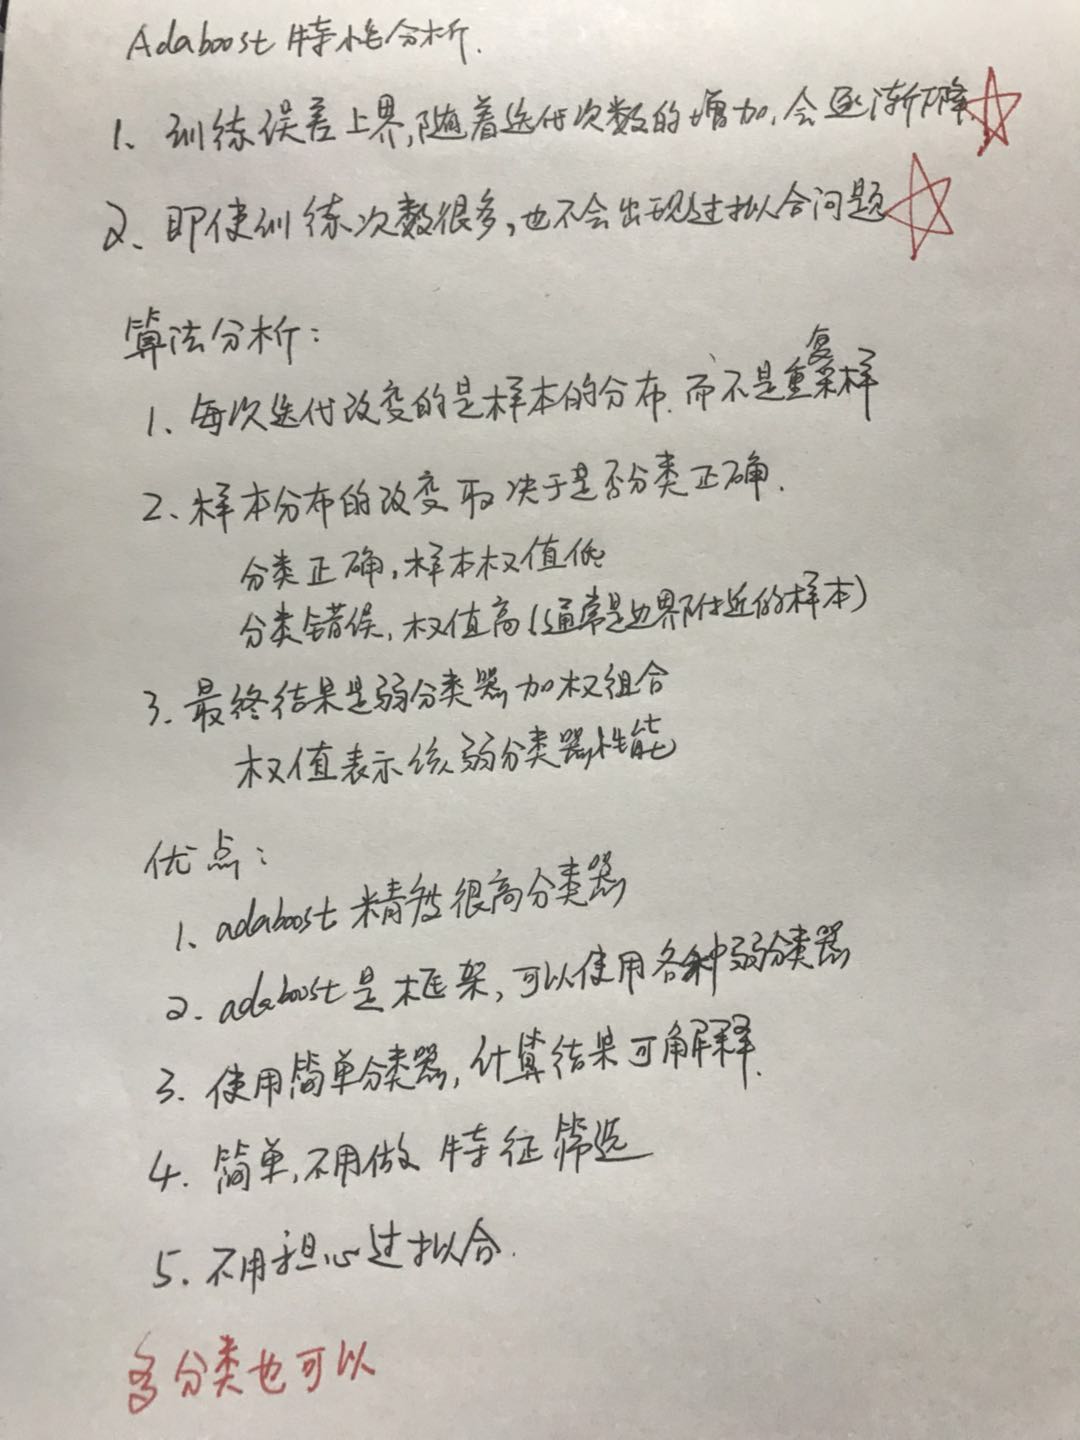 Adaboost 特性分析.
1、训练误差上界,随着迭代次数的增加,会逐渐下降☆
2、即使训练次数很多,也不会出现过拟合问题☆
算法分析:
1、每次迭代改变的是样本的分布.而不是重复采样
2、样本分布的改变取决于是否分类正确.
分类正确,样本权值低
分类错误,权值高(通常是边界附近的样本)
3.最终结果是弱分类器加权组合
权值表示该弱分类器性能
优点:
1、adaboost 精度很高分类器
2.adaboost是框架,可以使用各种弱分类器
3.使用简单分类器,计算结果可解释.
4.简单,不用做 特征筛选
5.不用担心过拟合.
多分类也可以